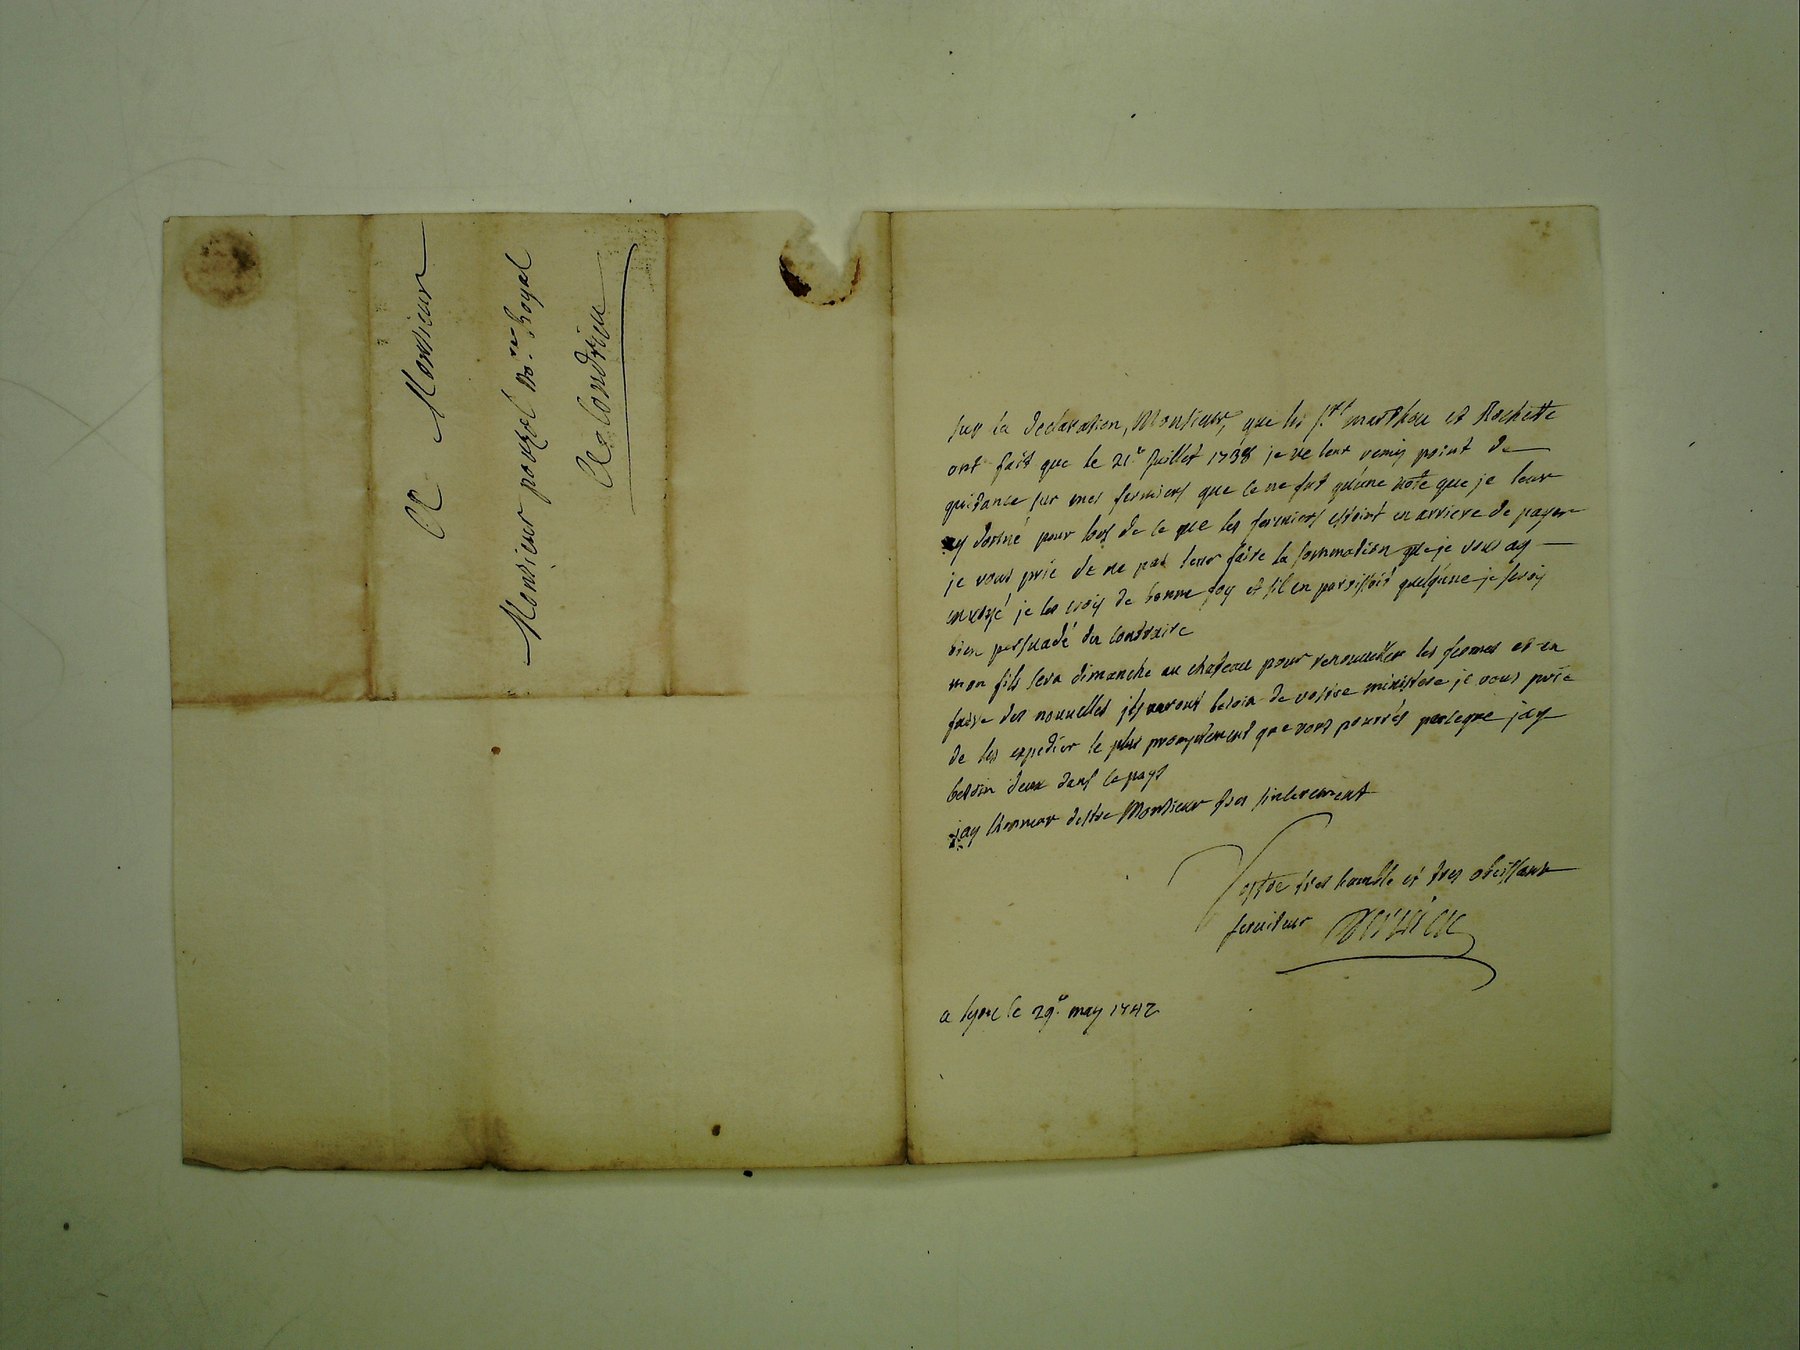 A Monsieur
Monsieur pouzol no.re Royal
A Condrieu
sur la declaration, Monsieur, que les s.rs marthou et Rochette
ont fait que le 21.e juillet 1738 je ne leur remis point de
quitance sur mes fermiers que ce ne fut qu'une note que je leur
ay donné pour lors de ce que les fermiers estoint en arriere de payer
je vous prie de ne pas leur faire la sommation que je vous ay
envoyé je les crois de bonne foy et sil en paroissoit quelqu'une je serois
bien persuadé du contraire
mon fils sera dimanche au chateau pour renouueller les fermes et en
faire des nouuelles ils auront besoin de vostre ministere je vous prie
de les expedier le plus promptement que vous pourrés parceque jay
besoin deux dans ce pays
jay lhonneur destre Monsieur tres sincerement
Vostre tres humble et tres obeissant
seruiteur
a lyon le 29.e may 1742